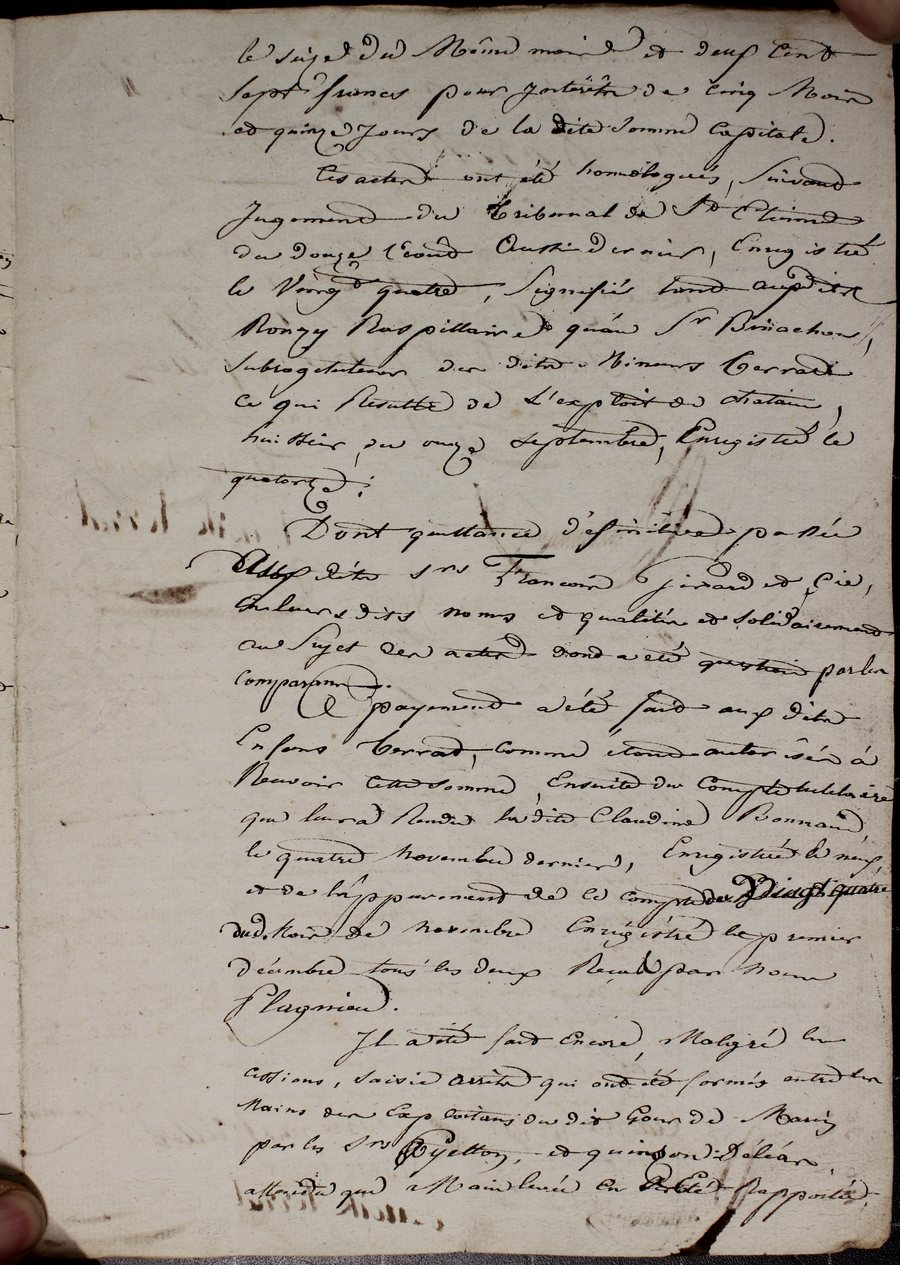 le seize du Même mois et deux Cent
Sept francs pour Intérêts de Cinq Mois
et quinze Jours de la dite Somme Capitale.
Ces actes ont été homologués, Suivant
Jugement du Tribunal de St Etienne
du douze Aoust dernier, Enregistré
le Vingt quatre, Signifiés tant auxdits
Ronzy Raspillaire qu'au Sr Brüachon,
Subrogé tuteur des dits Mineurs Terrad
Ce qui Résulte de L'exploit de chatain,
huissier, du onze Septembre, Enregistré le
quatorze;
Dont quittance définitive passée
Aux dits srs Francois Girard et Cie,
En leurs dits noms et qualités et solidairement
au Sujet des actes dont a été question par les
Comparans.
Ce payement a été fait aux dits
Enfans Terrad, comme étant autorisés à
Recevoir cette Somme, Ensuite du Compte tutelaire
que leur a Rendu la dite Claudine Bonnand,
le quatre Novembre dernier, Enregistré le neuf
et de l'appurement de ce compte du Vingt quatre
dud. Mois de novembre Enrégistré le premier
décembre tous les deux Reçus par Nous
Flagnieu.
Il a été fait Encore, Malgré les
cessions, saisie arrêts qui ont été formés entre les
Mains des Exploitans du dit Cour de Marin
par les Srs Peyetton, et quinson Déléar,
attendu que Main levée En Rapportée.